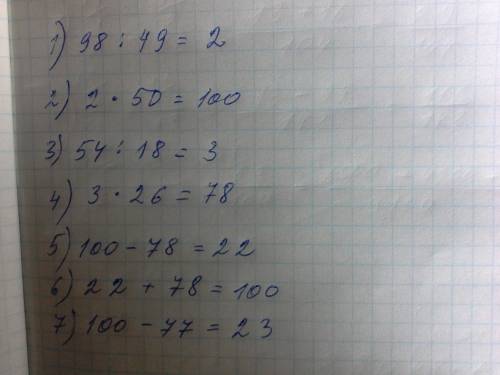 1) 98 : 49 = 2
2) 2 · 50 = 100
3) 54 : 18 = 3
4) 3 · 26 = 78
5) 100 - 78 = 22
6) 22 + 78 = 100
7) 100 - 77 = 23